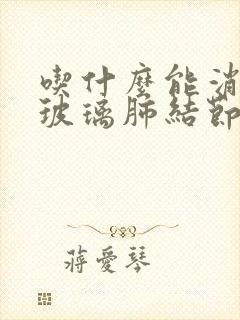 喫什麼能消
玻璃肺結節
蔣愛琴